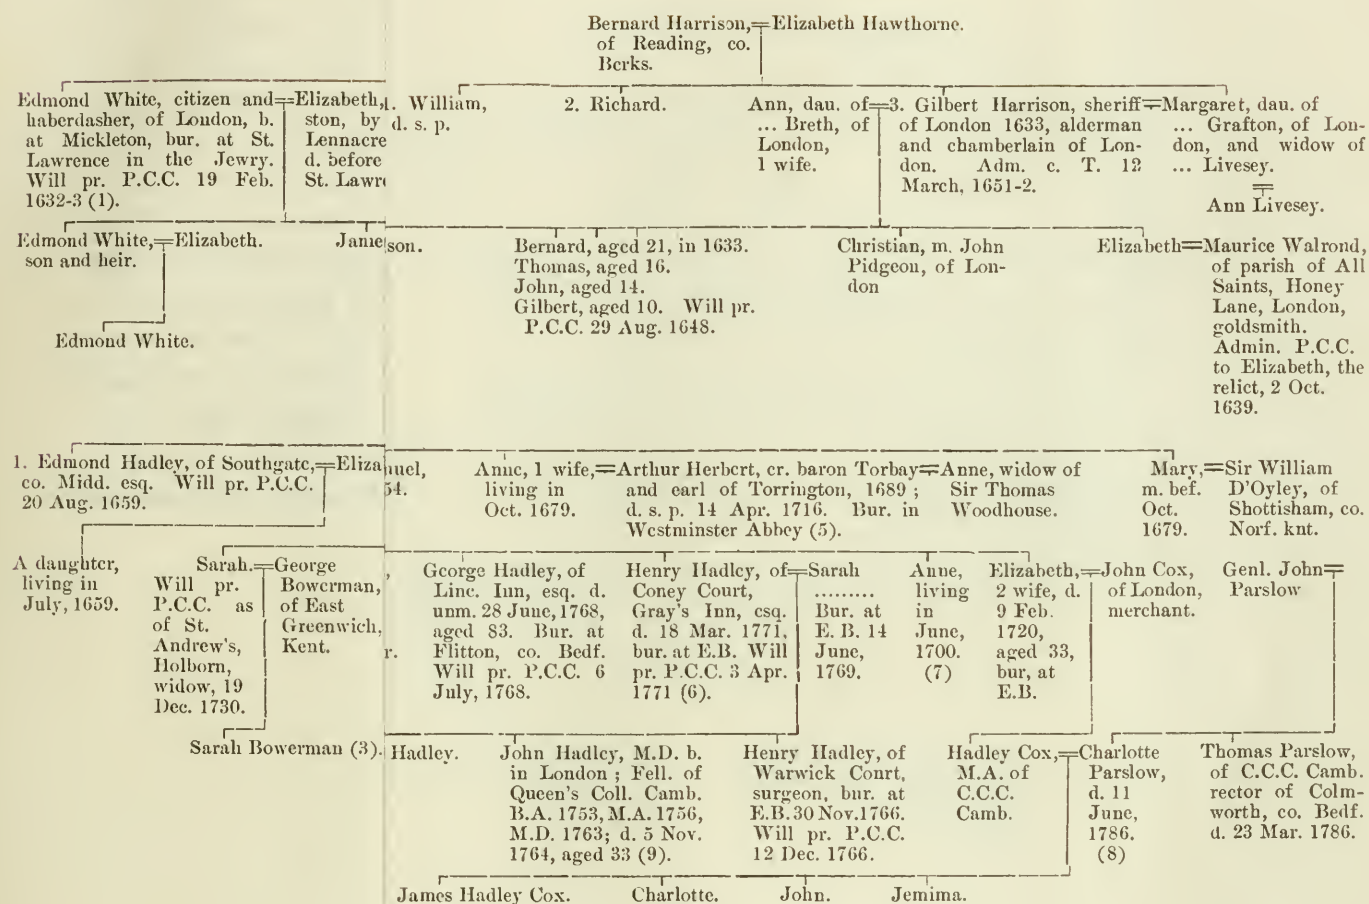 Bernard Harrison,=Elizabeth Hawthorne.
of Reading, co.
Berks.
Edmond White, citizen and
haberdasher, of London, b.
at Mickleton, bur. at St.
Lawrence in the Jewry.
Will pr. P.C.C. 19 Feb.
1632-3 (1).
=Elizabeth,
ston, by
Lennacre
d. before
St. Lawr
1. William,
d. s. p.
2. Richard.
Ann, dau. of
... Breth, of
London,
1 wife.
=3. Gilbert Harrison, sheriff
of London 1633, alderman
and chamberlain of Lon-
don. Adm. c. T. 12
March, 1651-2.
=Margaret, dau. of
... Grafton, of Lon-
don, and widow of
... Livesey.
=
Ann Livesey.
Edmond White,=Elizabeth.
son and heir.
Jane
son.
Bernard, aged 21, in 1633.
Thomas, aged 16.
John, aged 14.
Gilbert, aged 10. Will pr.
P.C.C. 29 Aug. 1648.
Christian, m. John
Pidgeon, of Lon-
don
Elizabeth=Maurice Walrond,
of parish of All
Saints, Honey
Lane, London,
goldsmith.
Admin. P.C.C.
to Elizabeth, the
relict, 2 Oct.
1639.
Edmond White.
1. Edmond Hadley, of Southgate,=Eliza
co. Midd. esq. Will pr. P.C.C.
20 Aug. 1659.
nuel,
54.
Anne, 1 wife,
living in
Oct. 1679.
=Arthur Herbert, cr. baron Torbay
and earl of Torrington, 1689 ;
d. s. p. 14 Apr. 1716. Bur. in
Westminster Abbey (5).
=Anne, widow of
Sir Thomas
Woodhouse.
Mary,
m. bef.
Oct.
1679.
=Sir William
D'Oyley, of
Shottisham, co.
Norf. knt.
A daughter,
living in
July, 1659.
Sarah.
Will pr.
P.C.C. as
of St.
Andrew's,
Holborn,
widow, 19
Dec. 1730.
=George
Bowerman,
of East
Greenwich,
Kent.
,
r.
George Hadley, of
Linc. Inn, esq. d.
unm. 28 June, 1768,
aged 83. Bur. at
Flitton, co. Bedf.
Will pr. P.C.C. 6
July, 1768.
Henry Hadley, of
Coney Court,
Gray's Inn, esq.
d. 18 Mar. 1771,
bur. at E.B. Will
pr. P.C.C. 3 Apr.
1771 (6).
=Sarah
.........
Bur. at
E. B. 14
June,
1769.
Anne,
living
in
June,
1700.
(7)
Elizabeth,
2 wife, d.
9 Feb.
1720,
aged 33,
bur, at
E.B.
=John Cox,
of London,
merchant.
Genl. John=
Parslow
Sarah Bowerman (3).
Hadley.
John Hadley, M.D. b.
in London ; Fell. of
Queen's Coll. Camb.
B.A. 1753, M.A. 1756,
M.D. 1763; d. 5 Nov.
1764, aged 33 (9).
Henry Hadley, of
Warwick Court,
surgeon, bur. at
E.B. 30 Nov. 1766.
Will pr. P.C.C.
12 Dec. 1766.
Hadley Cox,
M.A. of
C.C.C.
Camb.
=Charlotte
Parslow,
d. 11
June,
1786.
(8)
Thomas Parslow,
of C.C.C. Camb.
rector of Colm-
worth, co. Bedf.
d. 23 Mar. 1786.
James Hadley Cox.
Charlotte.
John.
Jemima.